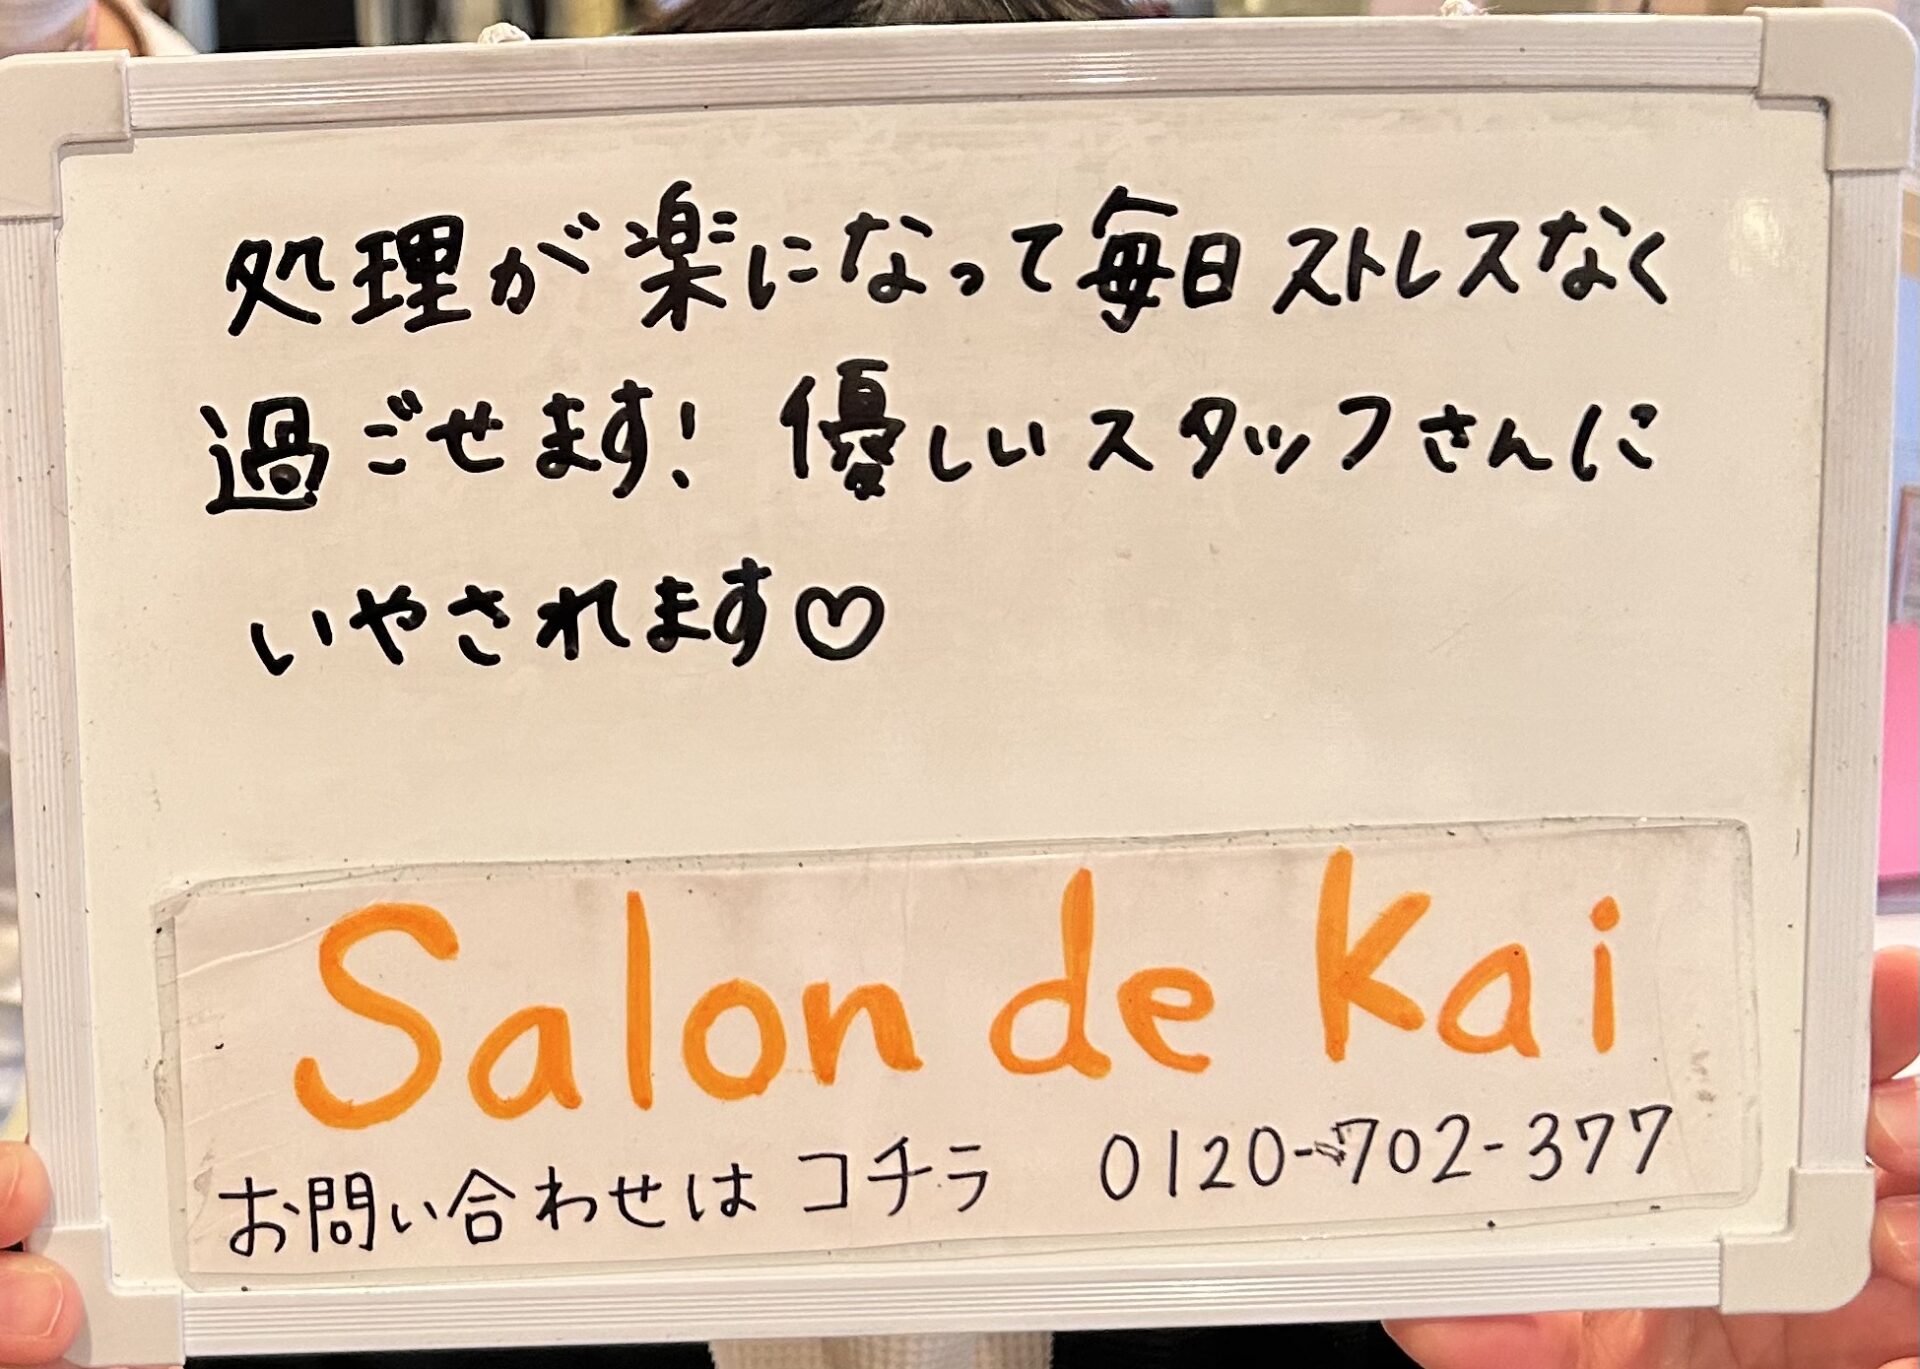 処理が楽になって毎日ストレスなく
過ごせます! 優しいスタッフさんに
いやされます♡
Salon de Kai
お問い合わせは コチラ 0120-702-377